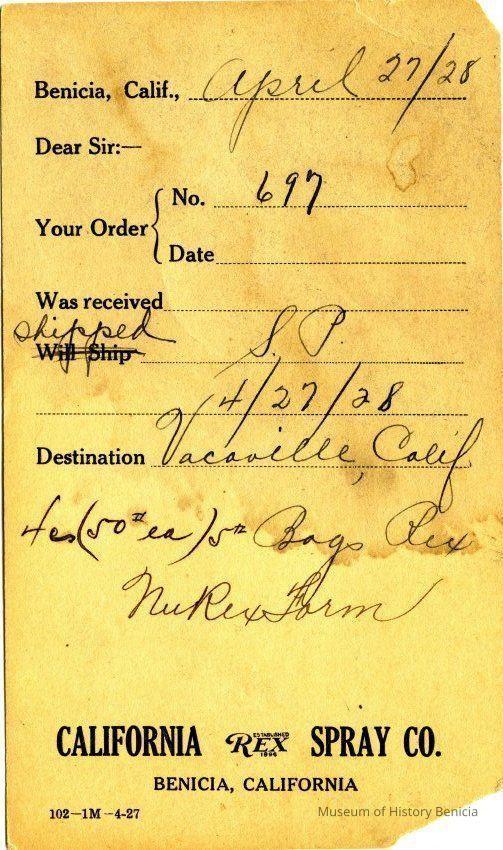 Benicia, Calif., April 27/28
Dear Sir:—
Your Order No. 697
Date
Was received
shipped
Will Ship S. P.
4/27/28
Destination Vacaville, Calif
4cs (50# ea) 5# Bags Rex
NuRexForm
CALIFORNIA REX SPRAY CO.
ESTABLISHED
1896
BENICIA, CALIFORNIA
102—1M—4-27
Museum of History Benicia